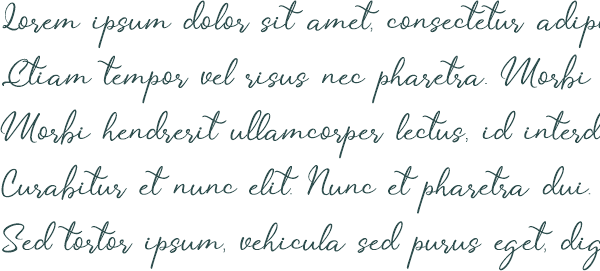 Lorem ipsum dolor sit amet, consectetur adipi
Etiam tempor vel risus nec pharetra. Morbi
Morbi hendrerit ullamcorper lectus, id interd
Curabitur et nunc elit. Nunc et pharetra dui.
Sed tortor ipsum, vehicula sed purus eget, dig